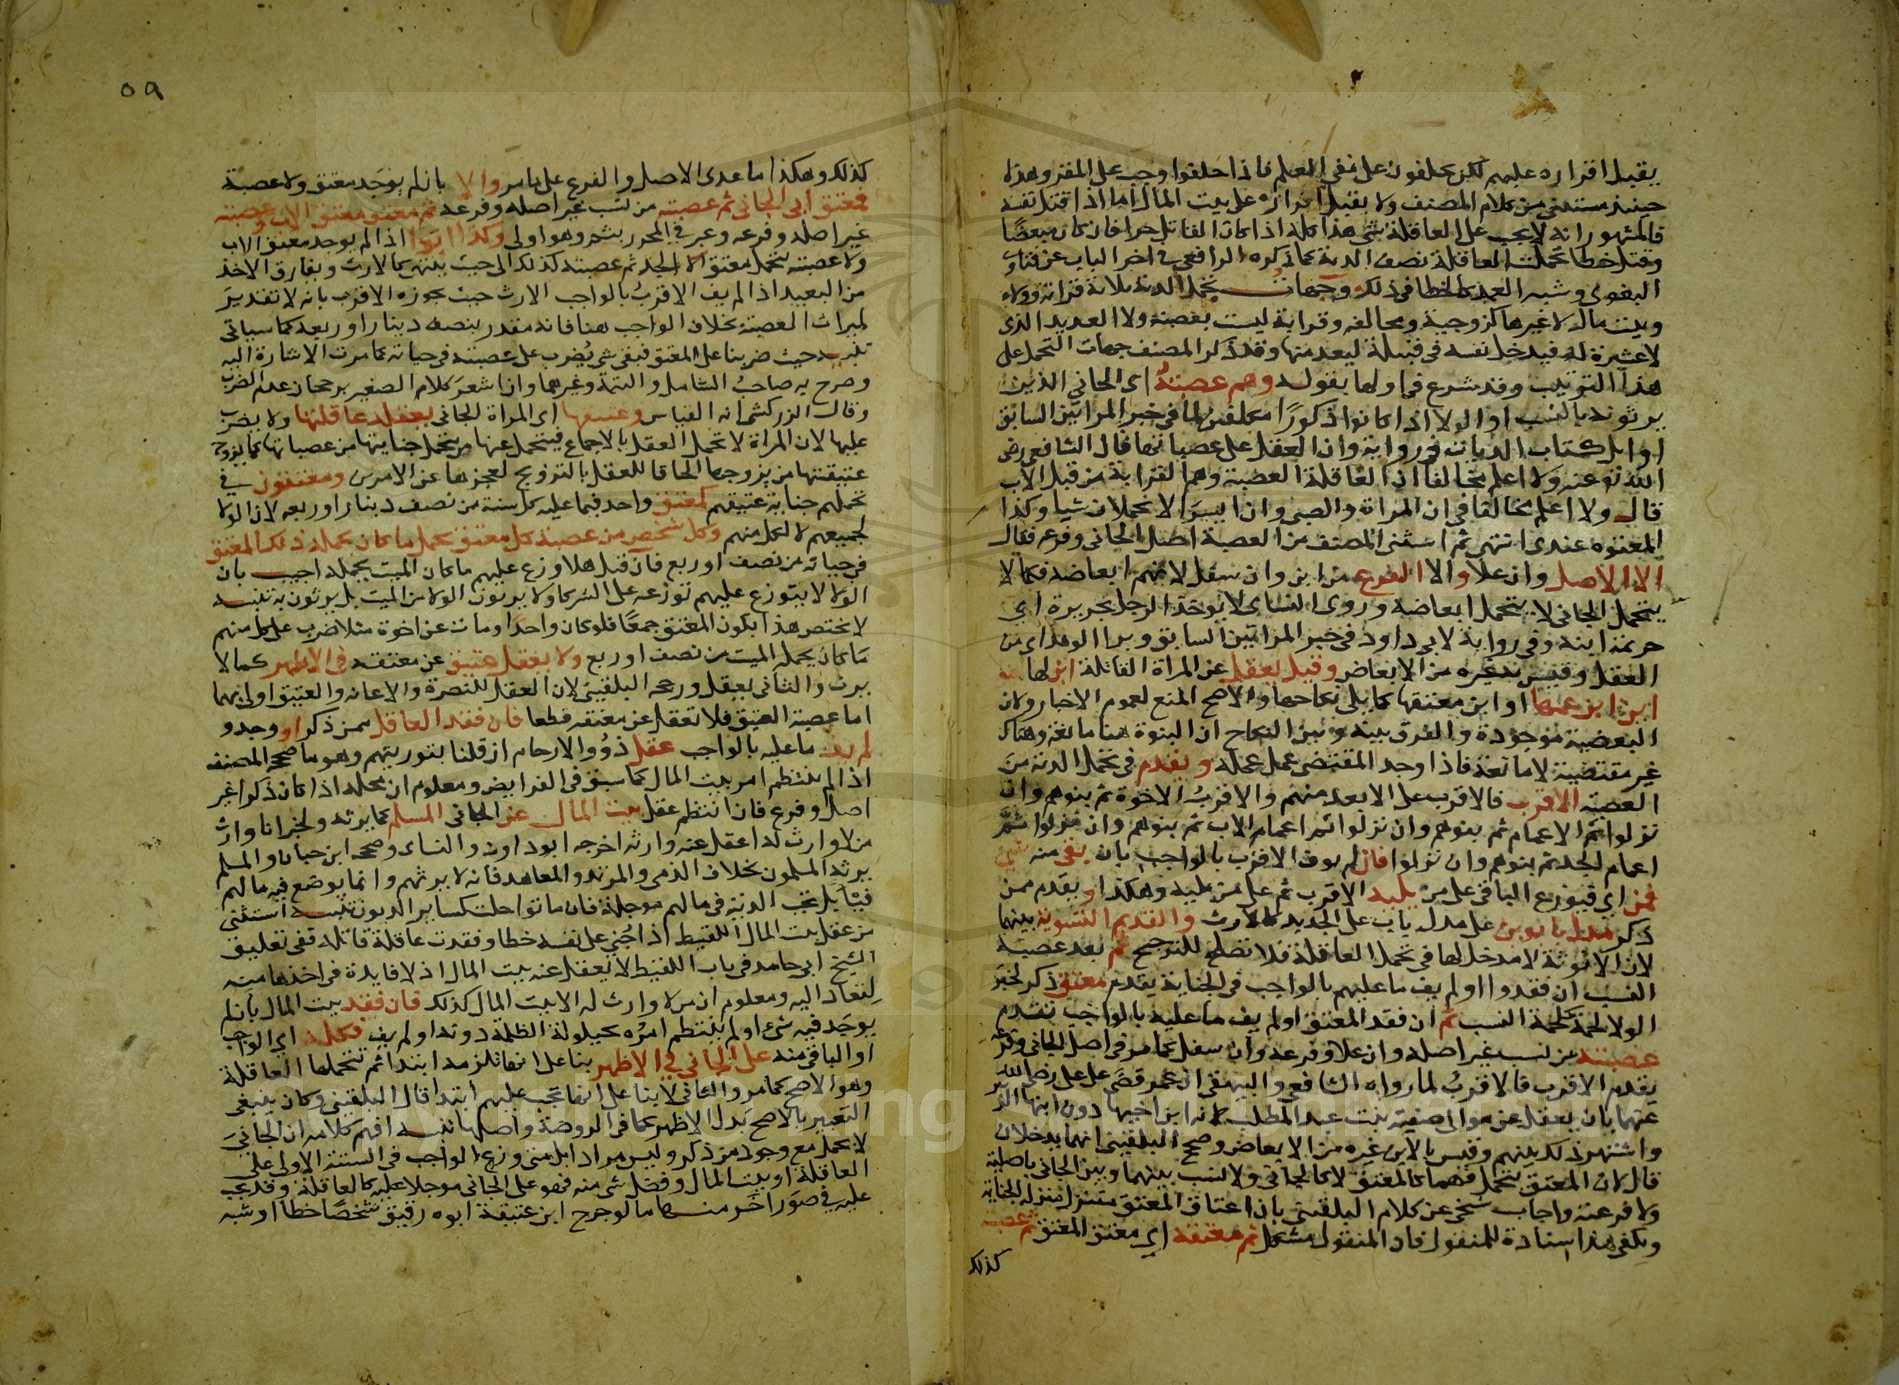 يقبل اقراره عليهم لكن يحلفون على نفي العلم فاذا حلفوا وجب على المقر وهذا
حينئذ مستثنى من كلام المصنف ولا يقبل اقراره على بيت المال اما اذا قتل نفسه
فالمشهور انه لا يجب على العاقلة شي هذا كله اذا كان القاتل حرا فان كان مبعضا
وقتل خطا تحملت العاقلة نصف الدية كما ذكره الرافعي في اخر الباب عن فتاوى
البغوي وشبه العمد كالخطا في ذلك وجهات تحمل الدية ثلاثة قرابة وولاء
وبيت مال لا غيرها كزوجية ومحالفة وقرابة ليست بعصبة ولا العديد الذي
لا عشيرة له فيدخل نفسه في قبيلة ليعد منها وقد ذكر المصنف جهات التحمل على
هذا الترتيب وقد شرع في اولها بقوله وهم عصبته اي الجاني الذين
يرثونه بالنسب او الولا اذا كانوا ذكورا مكلفين لما في خبر المراتين السابق
اوايل كتاب الديات في رواية وان العقل على عصباتها قال الشافعي رضي
الله تع عنه ولا اعلم مخالفا ان العاقلة العصبة وهم القرابة من قبل الاب
قال ولا اعلم مخالفا في ان المراة والصبي وان ايسرا لا يحملان شيا وكذا
المعتوه عندي انتهى ثم استثنى المصنف من العصبة اصل الجاني وفرعه فقال
الا الاصل وان علا والا الفرع من ابن وان سفل لانهم ابعاضه فكما لا
يتحمل الجاني لا يتحمل ابعاضه وروى النساي لا يوخذ الرجل بجريرة اي
جريمة ابنه وفي رواية لابي داود في خبر المراتين السابق وبرا الولد اي من
العقل وقيس به غيره من الابعاض وقيل يعقل عن المراة القاتلة ابن لها هو
ابن ابن عمها او ابن معتقها كما يلي نكاحها والاصح المنع لعموم الاخبار ولان
البعضية موجودة والفرق بينه وبين النكاح ان البنوة هنا مانعة وهناك
غير مقتضية لا مانعة فاذا وجد المقتضي عمل عمله ويقدم في تحمل الدية من
العصبة الاقرب فالاقرب على الابعد منهم والاقرب الاخوة ثم بنوهم وان
نزلوا ثم الاعمام ثم بنوهم وان نزلوا ثم اعمام الاب ثم بنوهم وان نزلوا ثم
اعمام الجد ثم بنوهم وان نزلوا فان لم يوف الاقرب بالواجب بان بقي منه شي
فمن اي فيوزع الباقي على من يليه الاقرب ثم على من يليه وهكذا ويقدم ممن
ذكر مدل بابوين على مدل باب على الجديد كالارث والقديم التسوية بينهما
لان الانوثة لا مدخل لها في تحمل العاقلة فلا تصلح للترجيح ثم بعد عصبة
النسب ان فقدوا او لم يف ما عليهم بالواجب في الجناية يقدم معتق ذكر لخبر
الولا لحمة كلحمة النسب ثم ان فقد المعتق او لم يف ما عليه بالواجب تقدم
عصبته من نسب غير اصله وان علا وفرعه وان سفل كما مر في اصل الجاني وفرعه
يقدم الاقرب فالاقرب لما رواه الشافعي والبيهقي ان عمر قضى على علي رضي الله
عنهما بان يعقل عن موالي صفية بنت عبد المطلب لانه ابن اخيها دون ابنها الزبير
واشتهر ذلك بينهم وقيس بالابن غيره من الابعاض وصحح البلقيني انهما يدخلان
قال لان المعتق يتحمل فهما كالمعتق لا كالجاني ولا نسب بينهما وبين الجاني باصلية
ولا فرعية واجاب شيخي عن كلام البلقيني بان اعتاق المعتق منزل منزلة الجناية
ويكفي هذا اسنادة للمنقول فان المنقول مشكل ثم معتقه اي معتق المعتق ثم عصبته
كذلك
٥٩
كذلك وهكذا ما عدى الاصل والفرع على ما مر والا بان لم يوجد معتق ولا عصبة
فمعتق ابي الجاني ثم عصبته من نسب غير اصله وفرعه ثم معتق معتق الاب وعصبته
غير اصله وفرعه وعبر في المحرر بثم وهو اولى وكذا ابدا اذا لم يوجد معتق الاب
ولا عصبته يتحمل معتق الجد ثم عصبته كذلك الى حيث ينتهي كالارث ويفارق الاخذ
من البعيد اذا لم يف الاقرب بالواجب الارث حيث يحوزه الاقرب بانه لا تقدير
لميراث العصبة بخلاف الواجب هنا فانه مقدر بنصف دينار او ربعه كما سياتي
تنبيه حيث ضربنا على المعتق فبقي شي يضرب على عصبته في حياته كما مرت الاشارة اليه
وصرح به صاحب الشامل والتتمة وغيرهما وان اشعر كلام الصغير برجحان عدم الضرب
وقال الزركشي انه القياس وعتيقها اي المراة الجاني يعقله عاقلتها ولا يضرب
عليها لان المراة لا تحمل العقل بالاجماع فيتحمل عنها من يتحمل جنايتها من عصباتها كما يزوج
عتيقتها من يزوجها الحاقا للعقل بالتزويج لعجزها عن الامرين ومعتقون في
تحملهم جناية عتيقهم كمعتق واحد فيما عليه كل سنة من نصف دينار او ربعه لان الولا
لجميعهم لا لكل منهم وكل شخص من عصبة كل معتق يحمل ما كان يحمله ذلك المعتق
في حياته من نصف او ربع فان قيل هلا وزع عليهم ما كان الميت يحمله اجيب بان
الولا لا يتوزع عليهم توزعه على الشركا ولا يرثون الولا من الميت بل يرثون به تنبيه
لا يختص هذا بكون المعتق جمعا فلو كان واحدا ومات عن اخوة مثلا ضرب على كل منهم
ما كان يحمله الميت من نصف او ربع ولا يعقل عتيق عن معتقه في الاظهر كما لا
يرث والثاني يعقل ورجحه البلقيني لان العقل للنصرة والاعانة والعتيق اولى بهما
اما عصبة العتيق فلا تعقل عن معتقه قطعا فان فقد العاقل ممن ذكر او وجد و
لم يف ما عليه بالواجب عقل ذوو الارحام ان قلنا بتوريثهم وهو ما صححه المصنف
اذا لم ينتظم امر بيت المال كما سبق في الفرايض ومعلوم ان محله اذا كان ذكرا غير
اصل وفرع فان انتظم عقل بيت المال عن الجاني المسلم كما يرثه ولخبر انا وارث
من لا وارث له اعقل عنه وارثه اخرجه ابو داود والنساى وصححه ابن حبان والمسلم
يرثه المسلمون بخلاف الذمي والمرتد والمعاهد فانه لا يرثهم وانما يوضع فيه مالهم
فييا بل تجب الدية في مالهم موجلة فان ماتوا حلت كساير الديون تنبيه استثنى
من عقل بيت المال اللقيط اذا جني على نفسه خطا وفقدت عاقلة قاتله ففي تعليق
الشيخ ابي حامد في باب اللقيط لا يعقل عنه بيت المال اذ لا فايدة في اخذها منه
لتعاد اليه ومعلوم ان من لا وارث له الا بيت المال كذلك فان فقد بيت المال بان لم
يوجد فيه شي او لم ينتظم امره بحيلولة الظلمة دونه او لم يف فكله اي الواجب
او الباقي منه على الجاني في الاظهر بنا على انها تلزمه ابتدا ثم تتحملها العاقلة
وهو الاصح كما مر والثاني لا بنا على انها تجب عليهم ابتدا قال البلقيني وكان ينبغي
التعبير بالاصح بدل الاظهر كما في الروضة واصلها تنبيه افهم كلامه ان الجاني
لا يحمل مع وجود من ذكر وليس مرادا بل متى وزع الواجب في السنة الاولى على
العاقلة او بيت المال وفضل شي منه فهو على الجاني موجلا عليه كالعاقلة وقد يجب
عليه في صور اخر منها ما لو جرح ابن عتيقة ابوه رقيق شخصا خطا او شبه